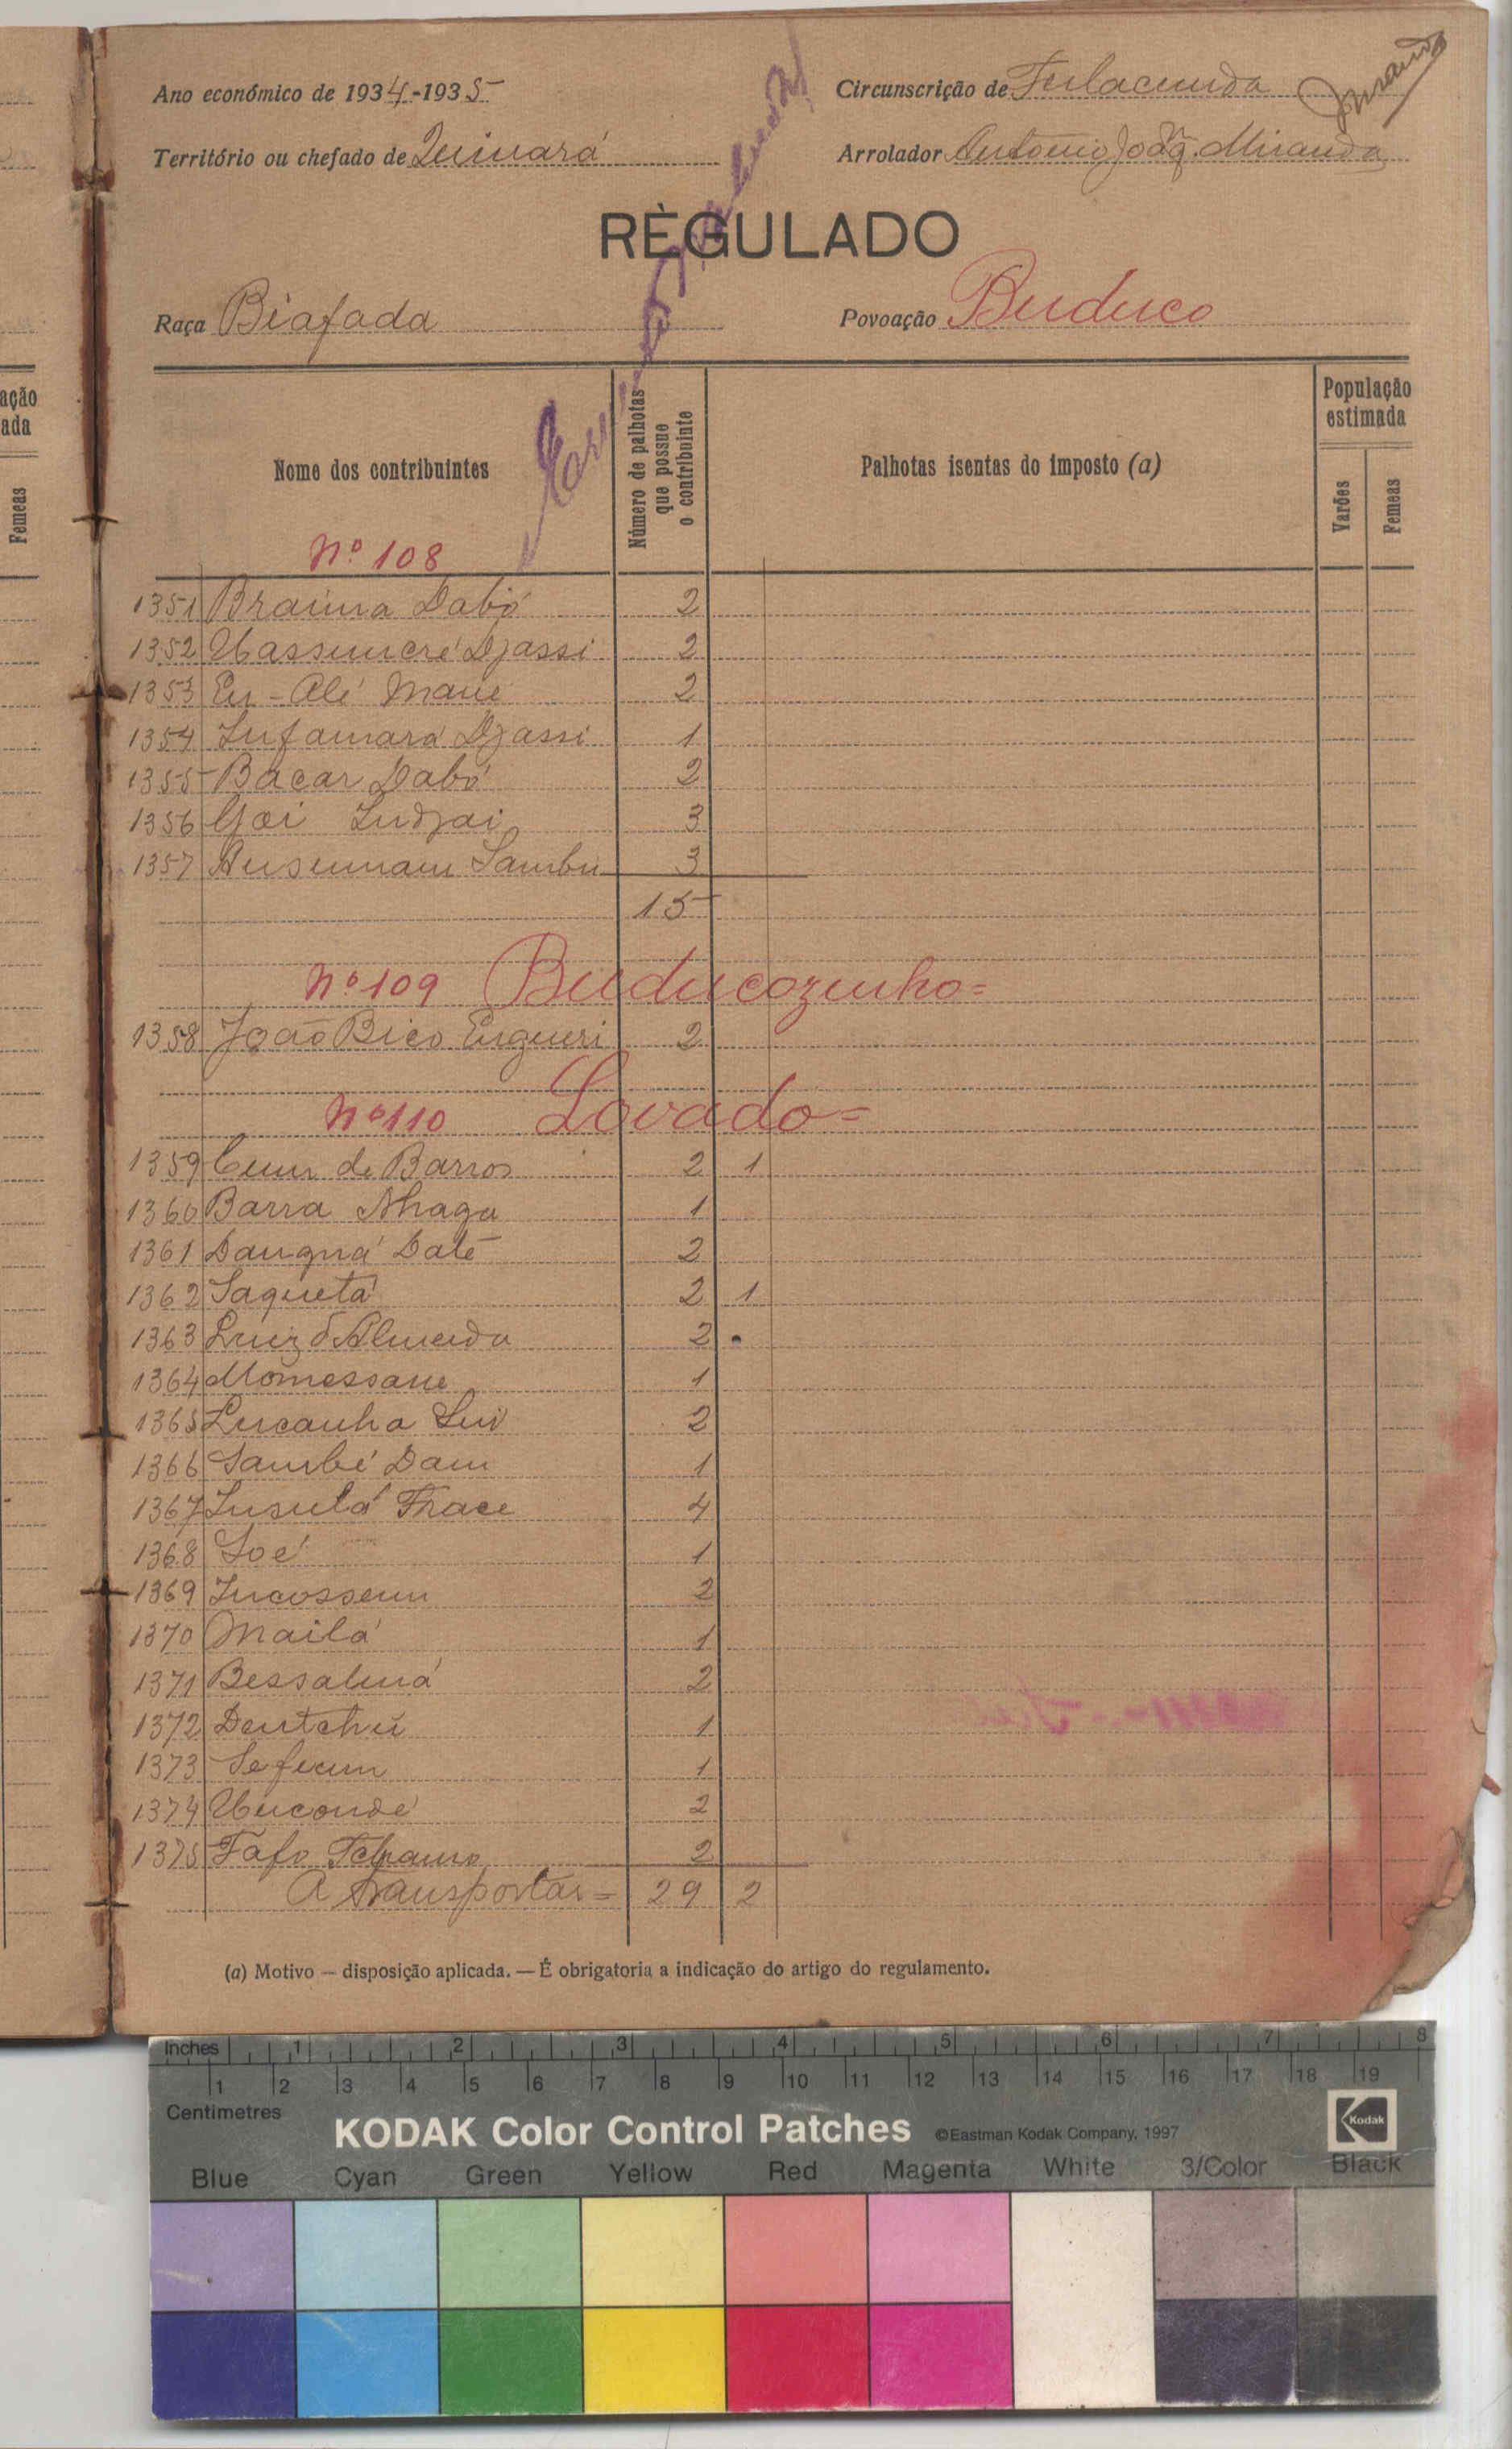 Ano económico de 1934-1935
Circunscrição de Fulacunda
Território ou chefado de Quinará
Arrolador Antonio Joaq. Miranda
RÈGULADO
Raça Biafada
Povoação Buduco
Nome dos contribuintes
Número de palhotas que possue o contribuinte
Palhotas isentas do imposto (a)
População estimada
Varões
Femeas
Nº 108
1351 Braima Dabó 2
1352 Djassi 2
1353 Mané 2
1354 Infamará Djassi 1
1355 Bacar Dabó 2
1356 Indjai 3
1357 Sambú 3
15
Nº 109 Buducozinho=
1358 João Bico 2
Nº 110 Lovado=
1359 de Barros 2 1
1360 Barra Nhaga 1
1361 2
1362 Saquetá 2 1
1363 Luiz d'Almeida 2
1364 Momessane 1
1365 2
1366 Sambé Dam 1
1367 4
1368 1
1369 2
1370 Mailá 1
1371 2
1372 1
1373 1
1374 2
1375 Fafo 2
A transportar= 29 2
(a) Motivo — disposição aplicada. — É obrigatoria a indicação do artigo do regulamento.
ação
ada
Femeas
Inches 1 2 3 4 5 6 7 8
1 2 3 4 5 6 7 8 9 10 11 12 13 14 15 16 17 18 19
Centimetres
KODAK Color Control Patches ©Eastman Kodak Company, 1997 Kodak
Blue Cyan Green Yellow Red Magenta White 3/Color Black